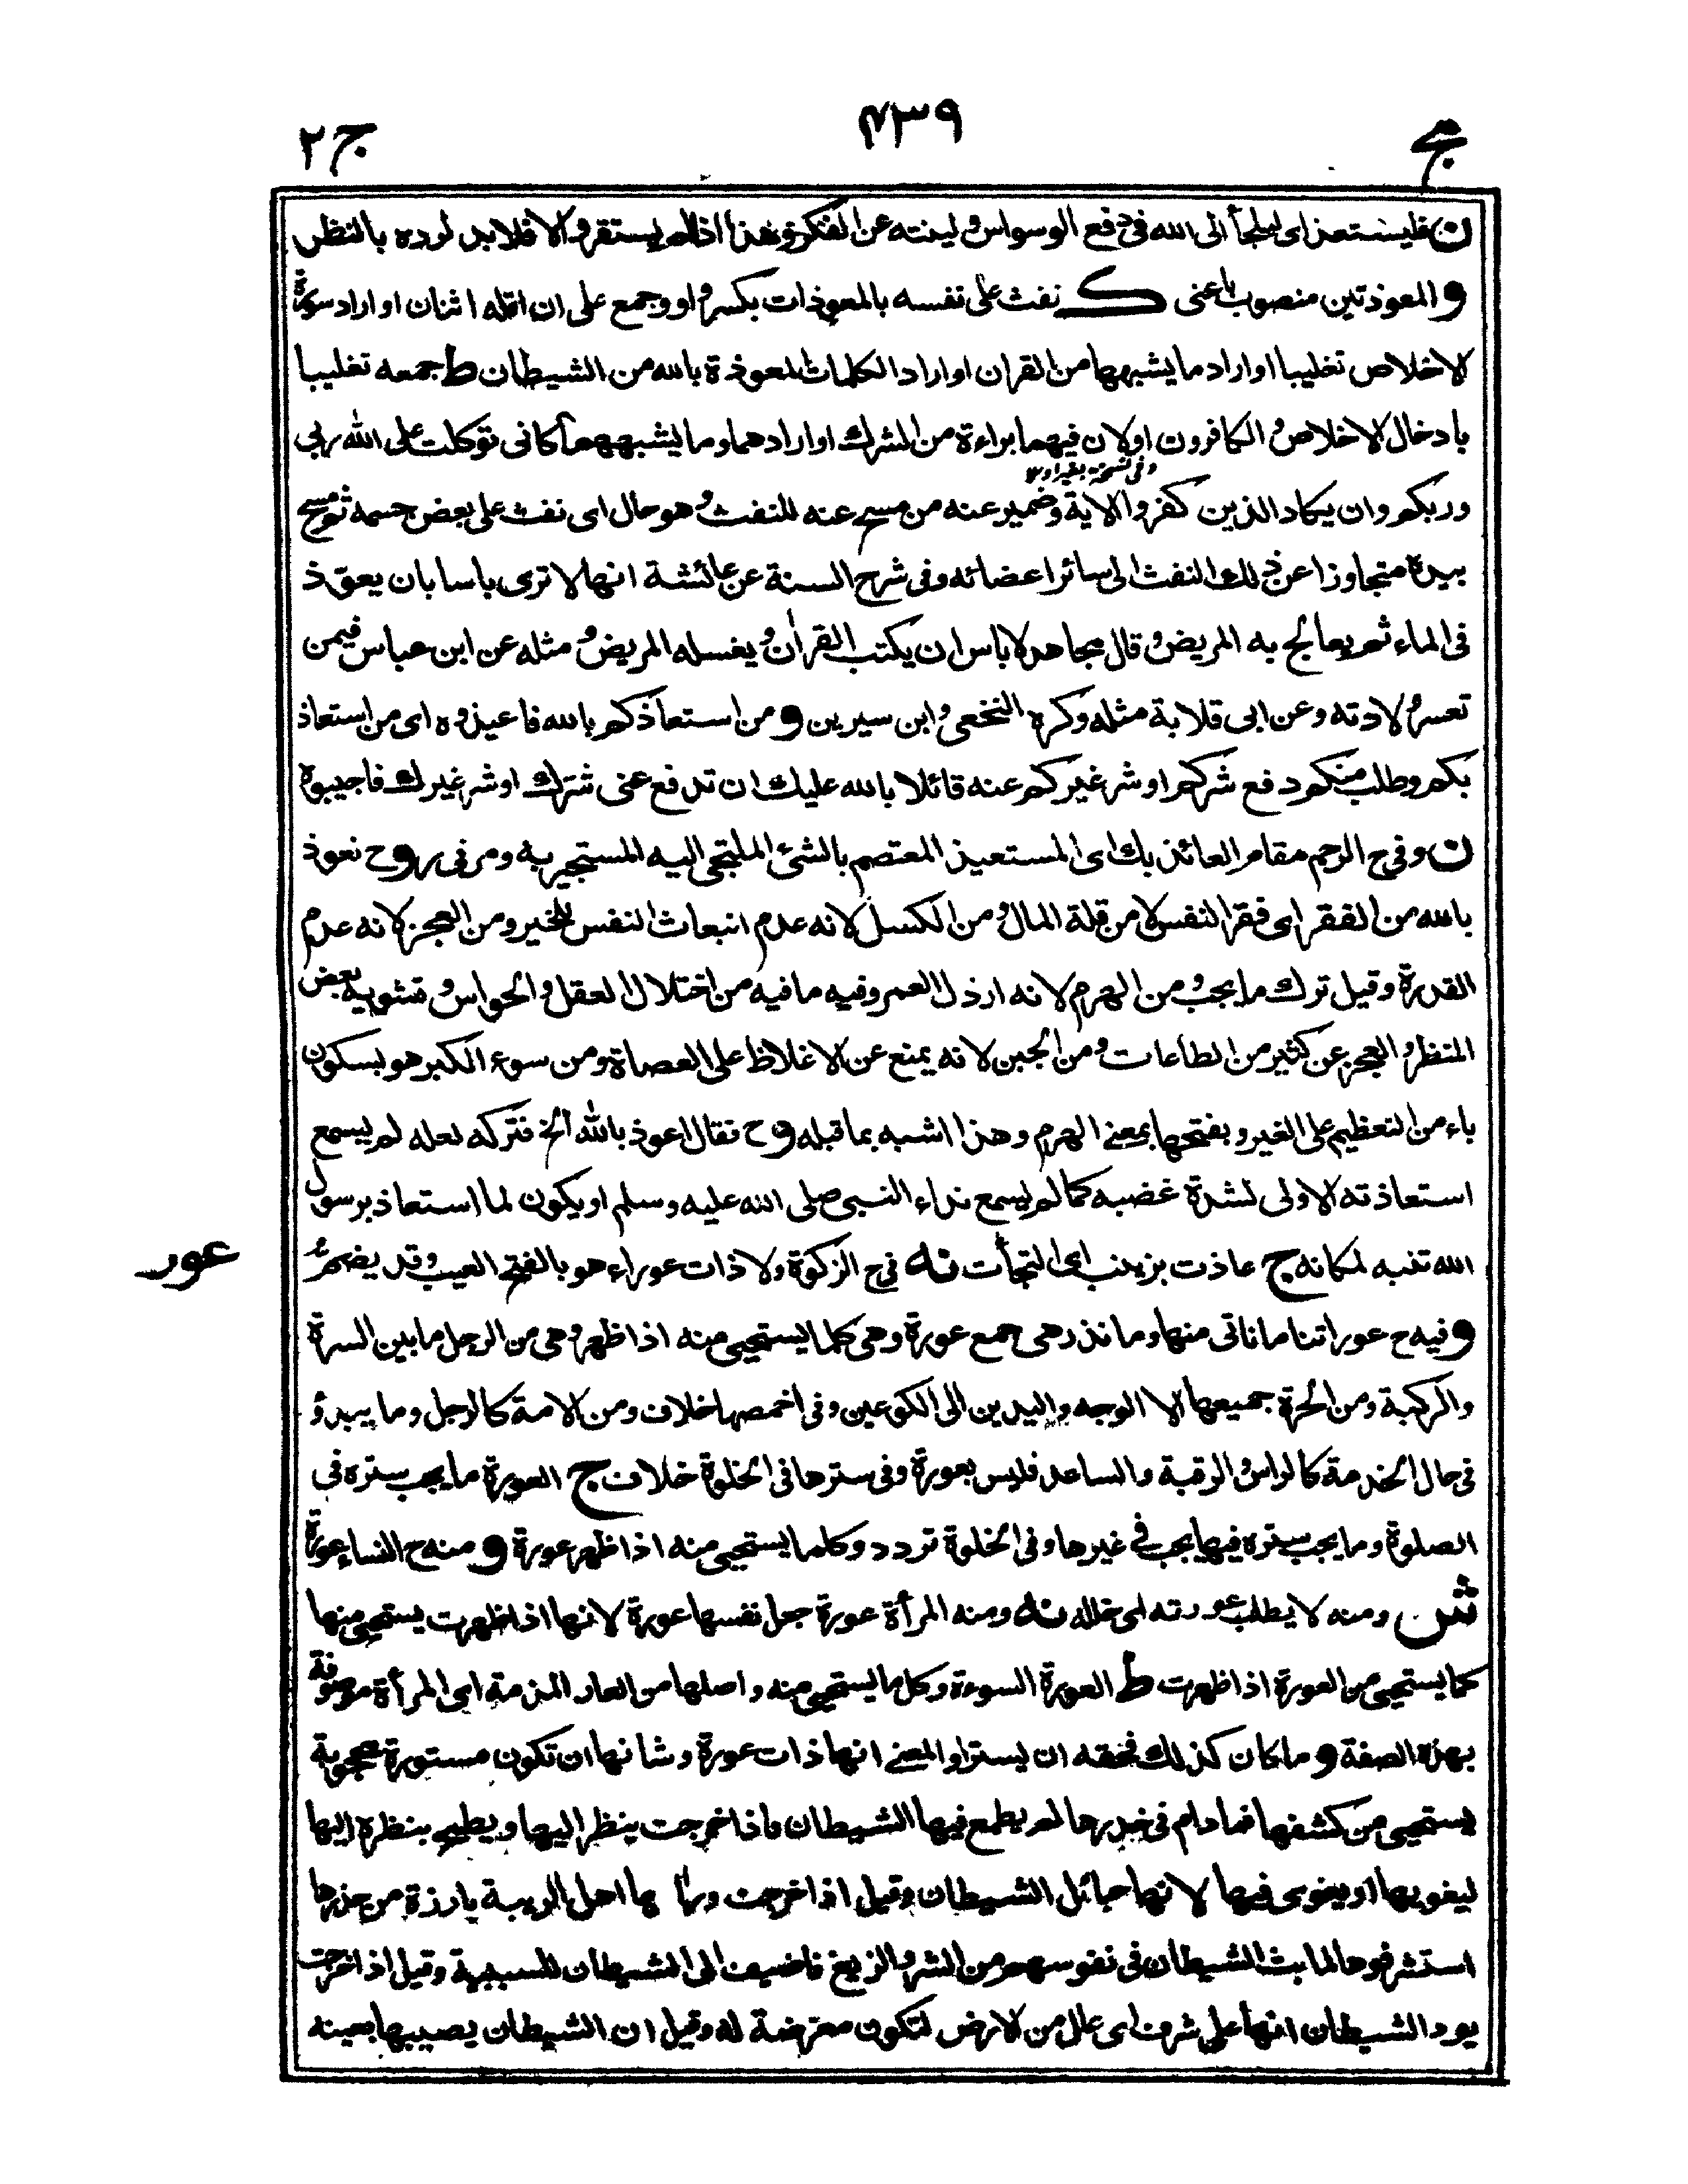 مج ٤٣٩ ج ٢
ن فليستعذ اى ليلجأ الى الله فى دفع الوسواس و لينته عن الفكر وهذا اذا لم يستقر و الا فلا بد لرده بالنظر
و المعوذتين منصوب باعنى ك نفث على نفسه بالمعوذات بكسر واو وجمع على ان اقله اثنان او اراد سورة
الاخلاص تغليبا او اراد ما يشبهها من القران او اراد الكلمات المعوذة بالله من الشيطان ط جمعه تغليبا
بادخال الاخلاص و الكافرون او لان فيهما براءة من الشرك او ارادهما و ما يشبههما كانى توكلت على الله ربى
وفى نسخة بغير او ١٢
وربكم وان يكاد الذين كفروا الاية وضمير عنه من مسح عنه للنفث و هو حال اى نفث على بعض جسمه ثم مسح
بيده متجاوزا عن ذلك النفث الى سائر اعضائه وفى شرح السنة عن عائشة انها لا ترى باسا بان يعوّذ
فى الماء ثم يعالج به المريض و قال مجاهد لا باس ان يكتب القرأن و يغسله المريض و مثله عن ابن عباس فيمن
تعسر ولادته وعن ابى قلابة مثله وكره النخعى و ابن سيرين و من استعاذكم بالله فاعيذوه اى من استعاذ
بكم وطلب منكم دفع شركم او شر غيركم عنه قائلا بالله عليك ان تدفع عنى شرك او شر غيرك فاجيبوه
ن وفى ح الرحم مقام العائذ بك اى المستعيذ المعتصم بالشئ الملتجى اليه المستجير به ومر فى ر و ح نعوذ
بالله من الفقر اى فقر النفس لا من قلة المال و من الكسل لانه عدم انبعاث النفس للخير ومن العجز لانه عدم
القدرة وقيل ترك ما يجب و من الهرم لانه ارذل العمر وفيه ما فيه من اختلال العقل و الحواس و تشويه بعض
المنظر و العجز عن كثير من الطاعات و من الجبن لانه يمنع عن الاغلاظ على العصاة ومن سوء الكبر هو بسكون
باء من التعظيم على الغير و بفتحها بمعنے الهرم وهذا اشبه بما قبله و ح فقال اعوذ بالله الخ فتركه لعله لم يسمع
استعاذته الاولى لشدة غضبه كما لم يسمع نداء النبى صلى الله عليه وسلم او يكون لما استعاذ برسول
الله تنبه لمكانه ج عاذت بزينب اى التجأت نه فى ح الزكوة ولا ذات عوراء هو بالفتح العيب وقد يضم
عور
و فيه ح عوراتنا ما ناتى منها وما نذر هى جمع عورة وهى كلما يستحيى منه اذا ظهر وهى من الرجل ما بين السرة
والركبة ومن الحرة جميعها الا الوجه و اليدين الى الكوعين وفى اخمصها خلاف ومن الامة كالرجل وما يبدو
فى حال الخدمة كالراس و الرقبة والساعد فليس بعورة وفى سترها فى الخلوة خلاف ج العورة ما يجب ستره فى
الصلوة وما يجب ستره فيها يجب فى غيرها وفى الخلوة تردد وكلما يستحيى منه اذا ظهر عورة و منه ح النساء عورة
ش ومنه لا يطلب عورته اى خلله نه ومنه المرأة عورة جعل نفسها عورة لانها اذا ظهرت يستحيى منها
كما يستحيى من العورة اذا ظهرت ط العورة السوءة وكل ما يستحيى منه واصلها من العار المذمة اى المرأة موصوفة
بهذه الصفة و ما كان كذلك فحقه ان يستر او المعنے انها ذات عورة و شانها ان تكون مستورة محجوبة
يستحيى من كشفها فما دام فى خدرها لم يطمع فيها الشيطان فاذا خرجت ينظر اليها و يطيح بنظره اليها
ليغويها او يغوى فيها لانها حبائل الشيطان وقيل اذا خرجت ها اهل الريبة بارزة من خدرها
استشرفوها لما بث الشيطان فى نفوسهم من الشر و الزيغ فاضيف الى الشيطان للسببية وقيل اذا خرجت
يود الشيطان انها على شرف اى عال من الارض لتكون معترضة له وقيل ان الشيطان يصيبها بعينه